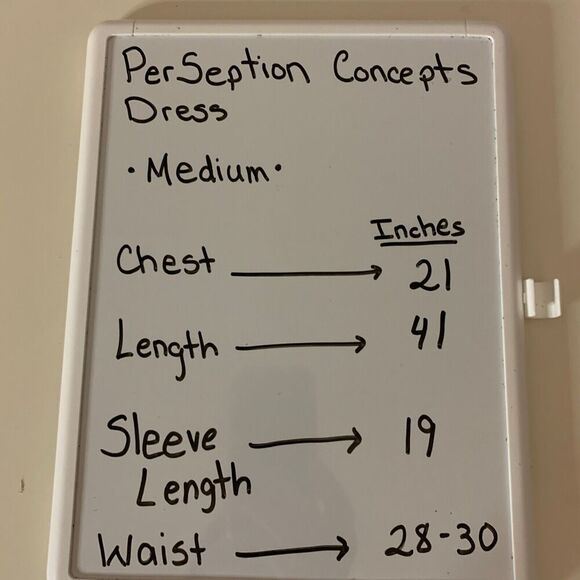 PerSeption Concepts
Dress
• Medium •
Inches
Chest → 21
Length → 41
Sleeve → 19
Length
Waist → 28-30